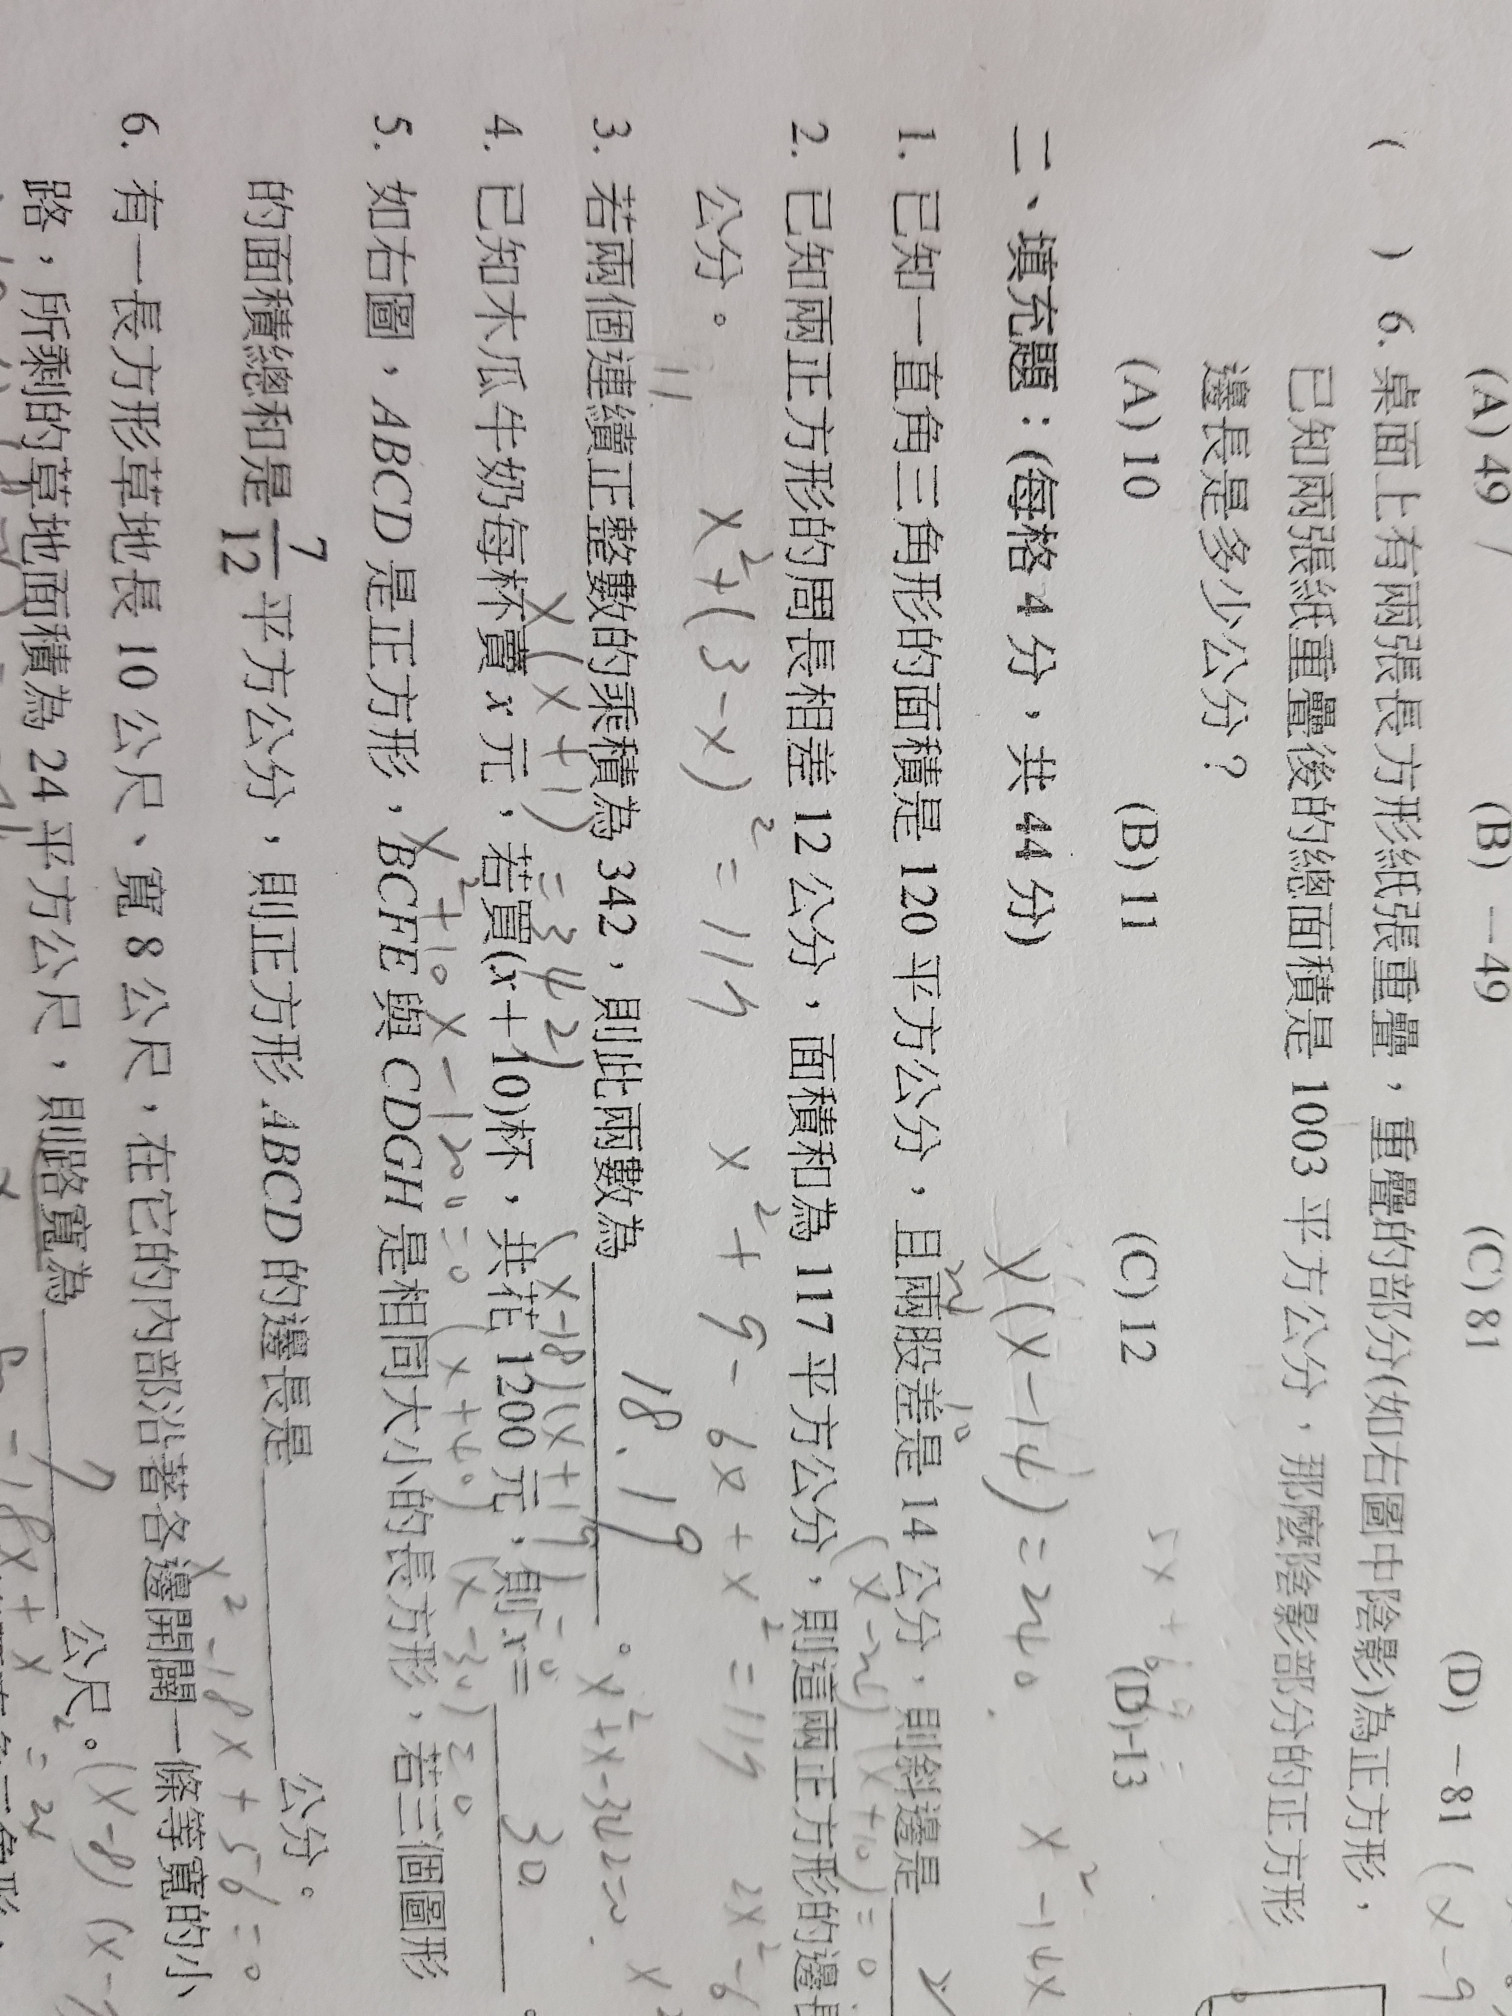 (A) 49 (B) －49 (C) 81 (D) －81
( ) 6. 桌面上有兩張長方形紙張重疊，重疊的部分(如右圖中陰影)為正方形，
已知兩張紙重疊後的總面積是 1003 平方公分，那麼陰影部分的正方形
邊長是多少公分？
(A) 10 (B) 11 (C) 12 (D) 13
二、填充題：(每格 4 分，共 44 分)
x(x-14)=240
x²-14x
1. 已知一直角三角形的面積是 120 平方公分，且兩股差是 14 公分，則斜邊是
(x-24)(x+10)=0
2. 已知兩正方形的周長相差 12 公分，面積和為 117 平方公分，則這兩正方形的邊
公分。
x²+(3-x)²=117
x²+9-6x+x²=117
2x²-6
3. 若兩個連續正整數的乘積為 342，則此兩數為 18.19 。
x(x+1)=342
x²+x-342=0
(x-18)(x+19)=0
4. 已知木瓜牛奶每杯賣 x 元，若買(x＋10)杯，共花 1200 元，則 x＝ 30
x²+10x-1200=0
(x+40)(x-30)=0
5. 如右圖，ABCD 是正方形，BCFE 與 CDGH 是相同大小的長方形，若三個圖形
的面積總和是 7/12 平方公分，則正方形 ABCD 的邊長是 公分。
x²-18x+56=0
6. 有一長方形草地長 10 公尺、寬 8 公尺，在它的內部沿著各邊開闢一條等寬的小
路，所剩的草地面積為 24 平方公尺，則路寬為 公尺。